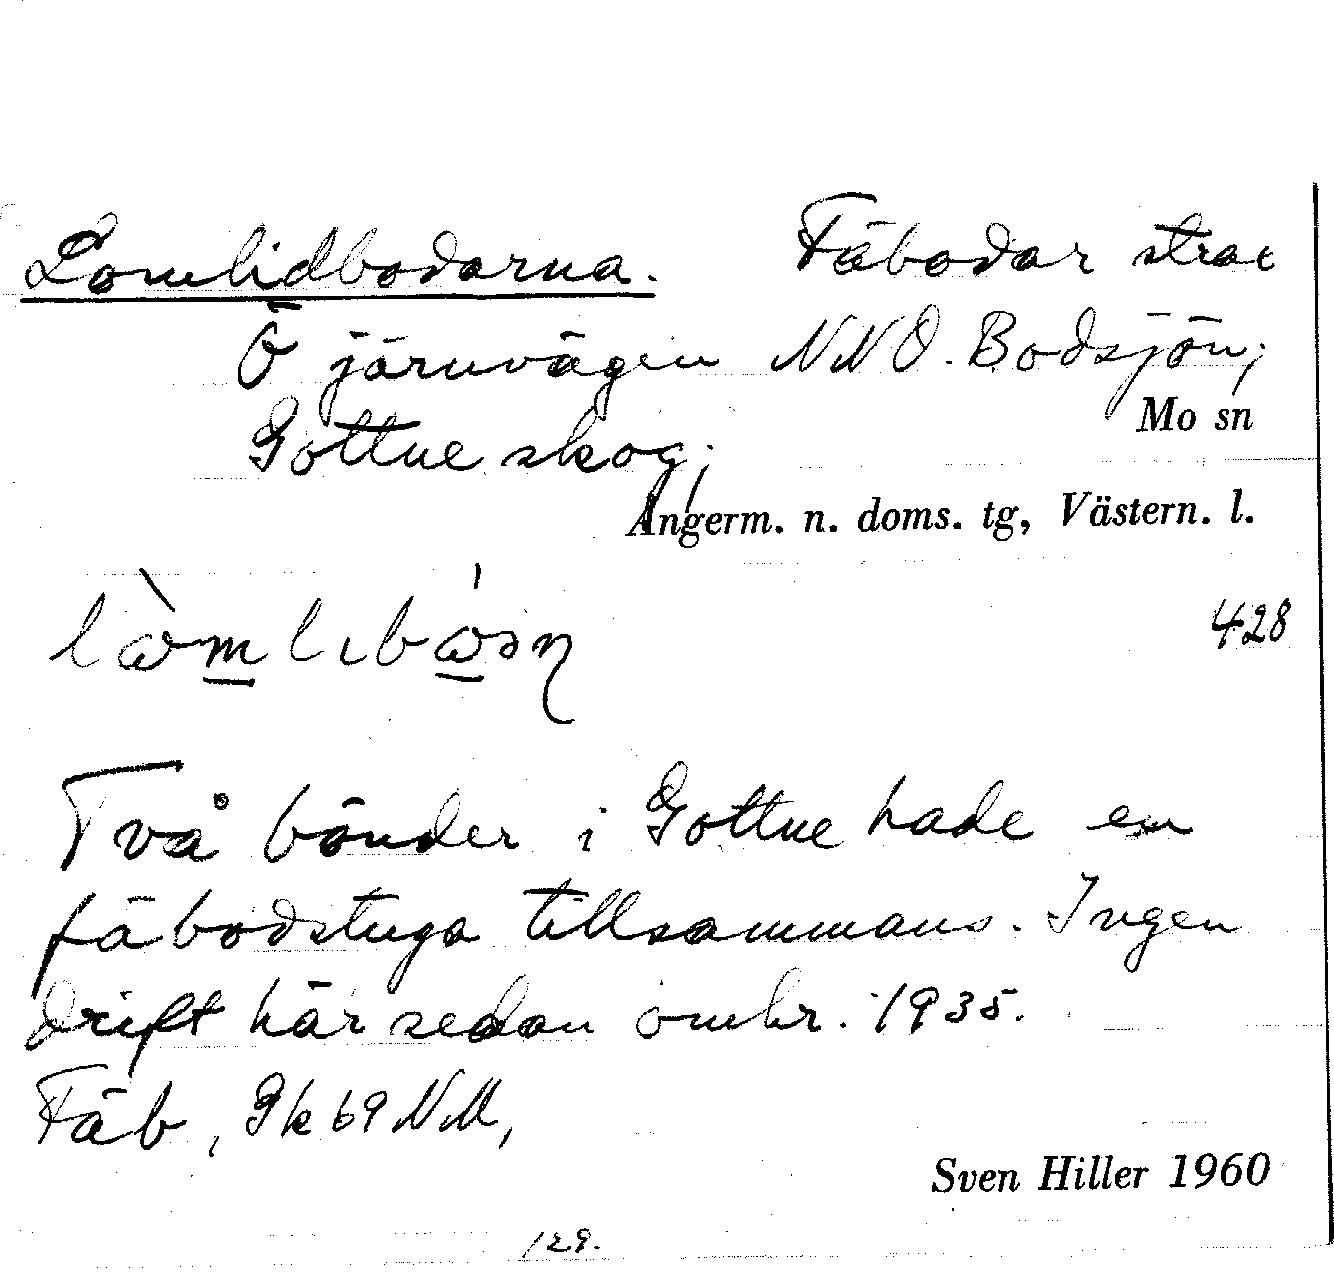 Lomlidbodarna. Fäbodar strax
Ö järnvägen NNO. Bodsjön;
Gottne skog;
Mo sn
Ångerm. n. doms. tg, Västern. l.
428
Två bönder i Gottne hade en
fäbodstuga tillsammans. Ingen
drift här sedan omkr. 1935.
Fäb, Gk 69 NM,
Sven Hiller 1960
129.